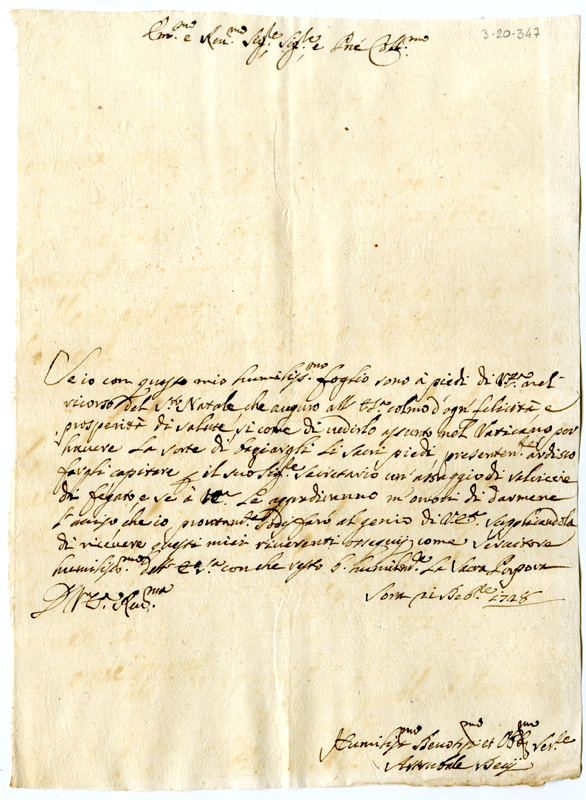 Em.mo e Rev.mo Sig.re Sig.re e Pne Coll.mo
3-20-347
Se io con questo mio humiliss.mo foglio sono à piedi di V.Em.a nel
ricorso del S.to Natale che auguro all' E.V. colmo d'ogni felicità, e
prosperità di salute si come di vederlo assunto nel Vaticano per
havere La sorte di bagiargli Li Sacri piedi presentem.te ardisco
fargli capitare p il suo Sig.re Secretario un' assaggio di salciccie
di fegato e se à Le agradiranno m'onori di darmene
l'aviso che io al genio di Supplicandola
di ricevere questi miei riverenti ossequij come Servitore
humiliss.mo dell' con che resto La Sacra Porpora
D. V. E. Rev.ma
Sora 21 1728
Humiliss.mo Devotiss.mo et Obl.mo Ser.re
Annibale